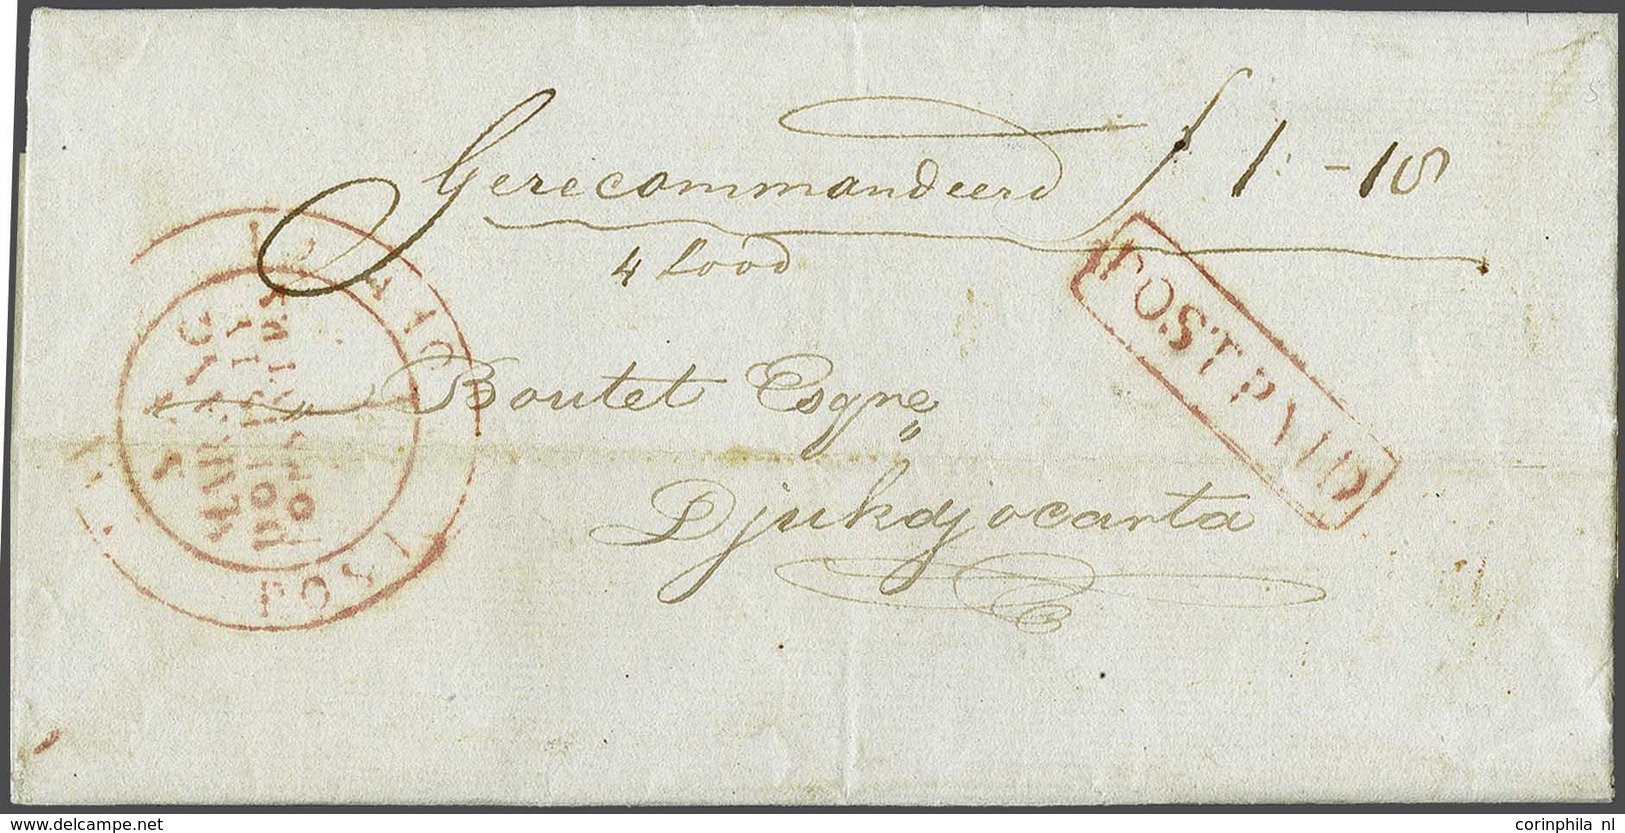 Gerecommandeerd f 1 - 18
4 Lood
POST PAID
Boutet Esqre
Djukdjocarta
POST
www.delcampe.net
corinphila nl